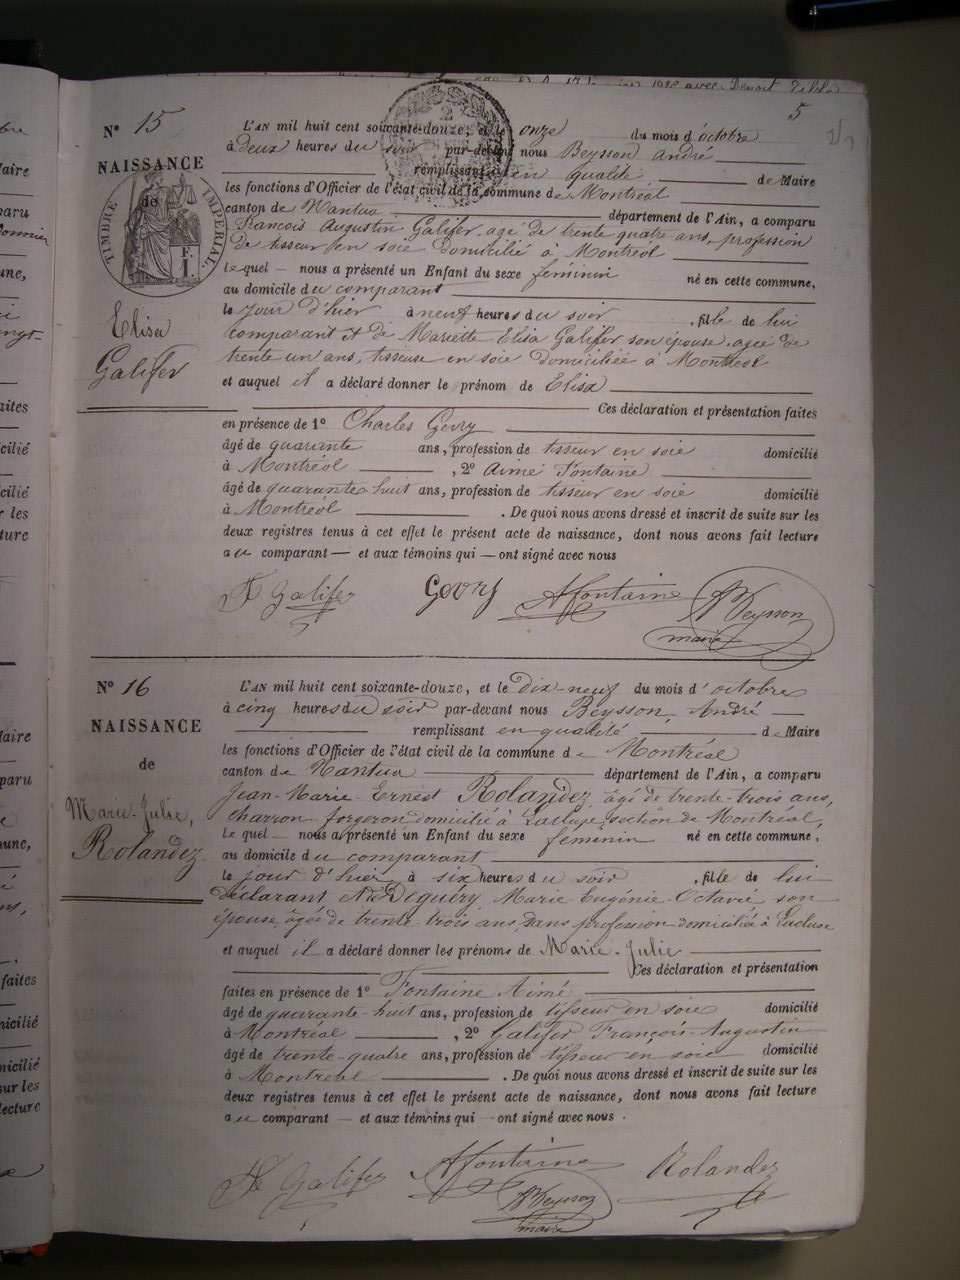 5
2
N° 15
NAISSANCE
de
TIMBRE IMPÉRIAL.
F.
I.
Elisa
Galifer
L'AN mil huit cent soixante-douze, et le onze du mois d'octobre
à deux heures du soir par-devant nous Beysson André
remplissant en qualité de Maire
les fonctions d'Officier de l'état civil de la commune de Montréal
canton de Nantua département de l'Ain, a comparu
François Augustin Galifer, agé de trente quatre ans, profession
de tisseur en soie domicilié à Montréol
Lequel nous a présenté un Enfant du sexe feminin né en cette commune,
au domicile du comparant
le jour d'hier à neuf heures du soir, fille de lui
comparant et de Mariette Elisa Galifer son épouse, agée de
trente un ans, tisseuse en soie domiciliée à Montréol
et auquel il a déclaré donner le prénom de Elisa
Ces déclaration et présentation faites
en présence de 1° Charles Gevry
âgé de quarante ans, profession de tisseur en soie domicilié
à Montréol, 2° Aimé Fontaine
âgé de quarante-huit ans, profession de tisseur en soie domicilié
à Montréol. De quoi nous avons dressé et inscrit de suite sur les
deux registres tenus à cet effet le présent acte de naissance, dont nous avons fait lecture
au comparant — et aux témoins qui — ont signé avec nous
Galifer Gevry Afontaine Beysson
maire
N° 16
NAISSANCE
de
Marie-Julie,
Rolandez
L'AN mil huit cent soixante-douze, et le dix-neuf du mois d'octobre
à cinq heures du soir par-devant nous Beysson, André
remplissant en qualité de Maire
les fonctions d'Officier de l'état civil de la commune de Montréal
canton de Nantua département de l'Ain, a comparu
Jean-Marie-Ernest Rolandez, âgé de trente-trois ans,
charron-forgeron domicilié à Lacluse, section de Montréal,
Le quel — nous a présenté un Enfant du sexe féminin né en cette commune,
au domicile du comparant
le jour d'hier à six heures du soir, fille de lui
déclarant & de Deguéry Marie Eugénie-Octavie son
épouse, âgée de trente-trois ans, sans profession domiciliée à Lacluse
et auquel il a déclaré donner les prénoms de Marie-Julie
Ces déclaration et présentation
faites en présence de 1° Fontaine Aimé
âgé de quarante-huit ans, profession de tisseur en soie domicilié
à Montréal, 2° Galifer François-Augustin
âgé de trente-quatre ans, profession de tisseur en soie domicilié
à Montréal. De quoi nous avons dressé et inscrit de suite sur les
deux registres tenus à cet effet le présent acte de naissance, dont nous avons fait lecture
au comparant — et aux témoins qui — ont signé avec nous.
Galifer Afontaine Rolandez
Beysson
maire